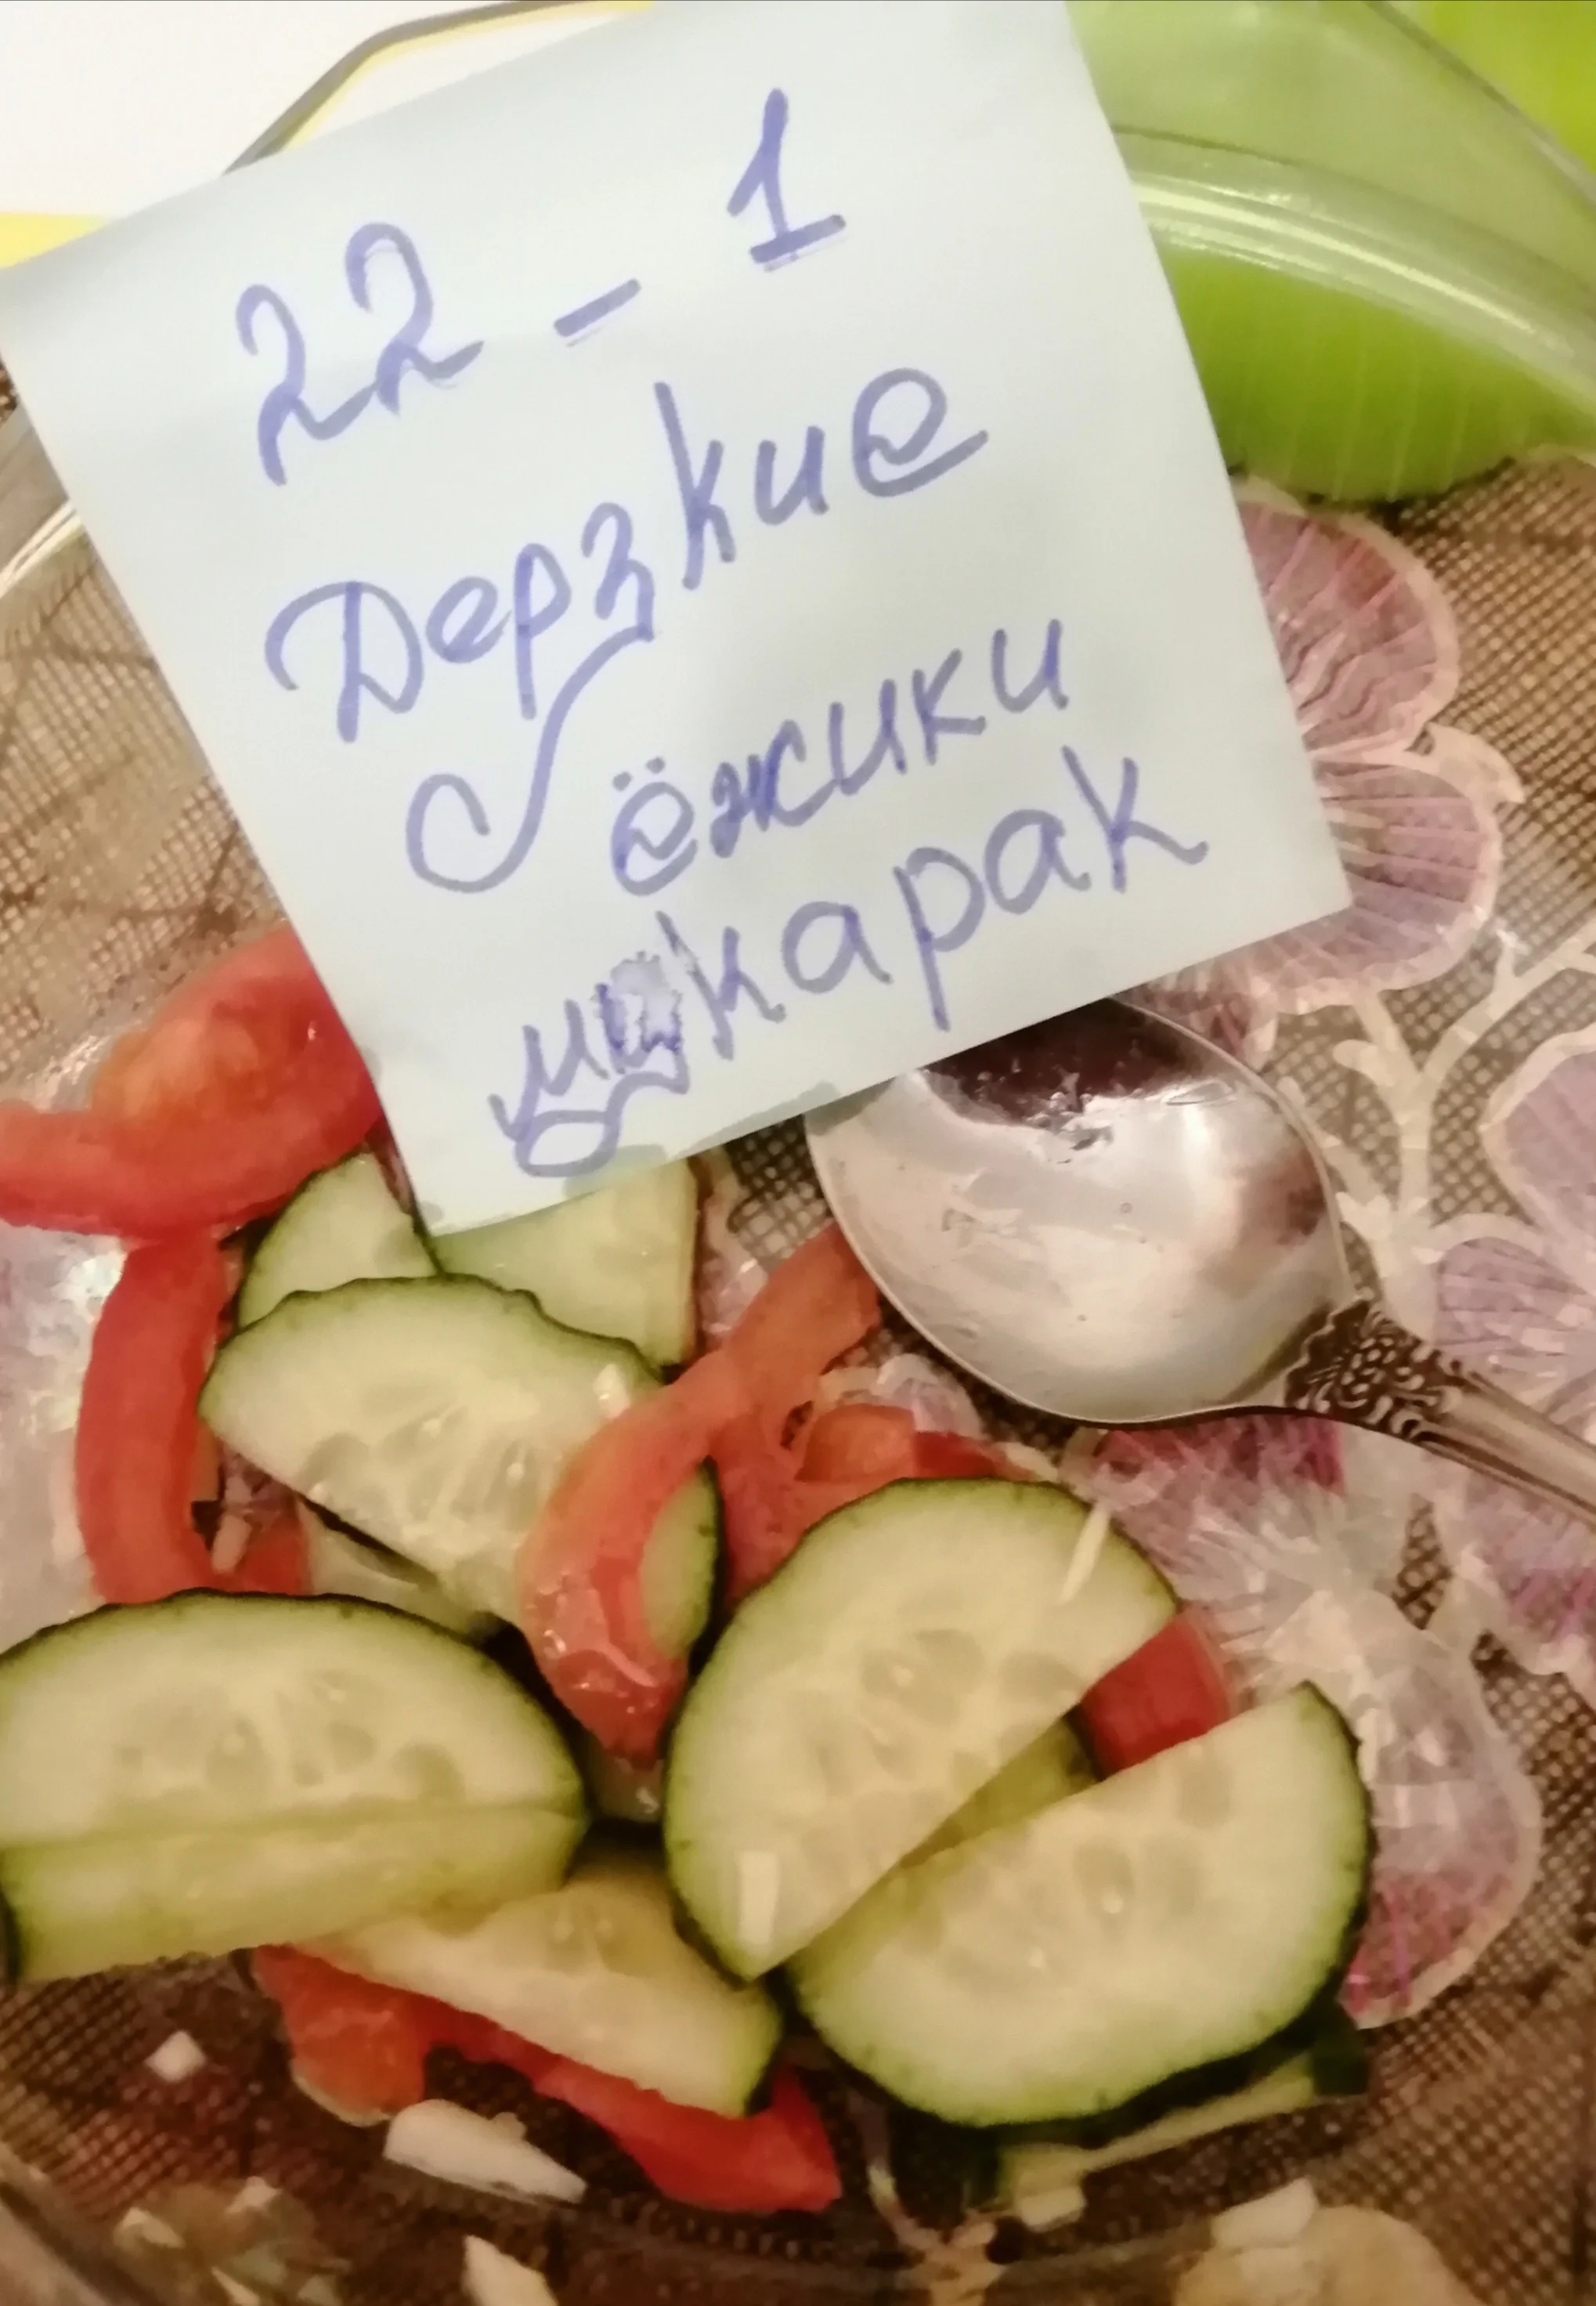 22-1
Дерзкие
ёжики
цкарак